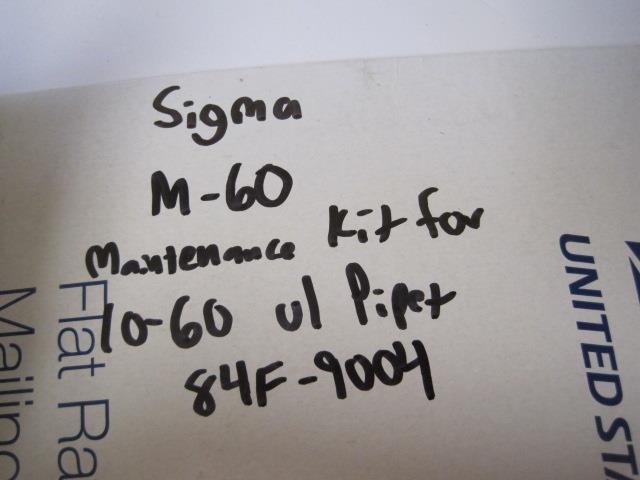 Sigma
M-60
Maintenance Kit for
10-60 ul Pipet
84F-9004
Flat Ra
Mailing
UNITED STA